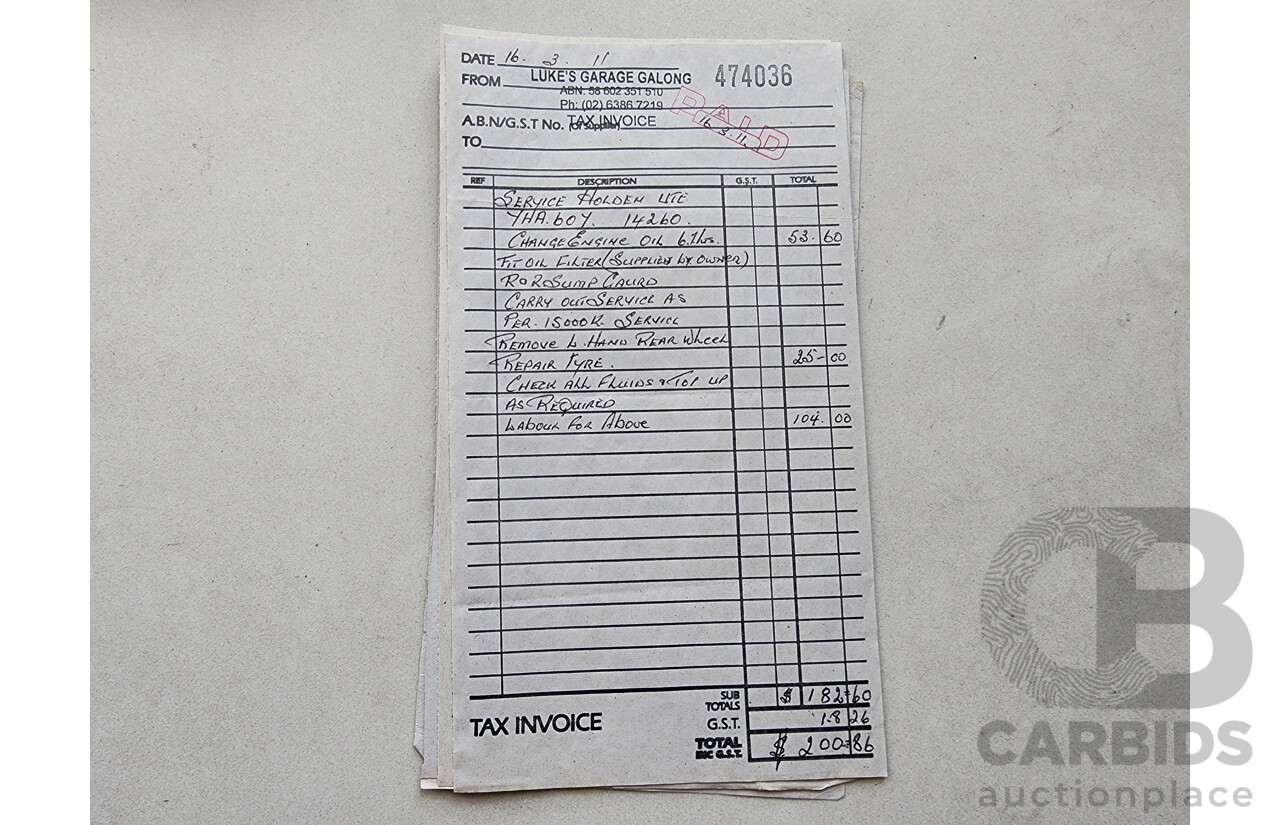 DATE 16. 3. 11
FROM LUKE'S GARAGE GALONG 474036
ABN. 58 602 351 510
Ph: (02) 6386 7219
A.B.N/G.S.T No. (Of Supplier) TAX INVOICE
PAID 16.3.11.
TO
REF DESCRIPTION G.S.T. TOTAL
SERVICE HOLDEN UTE
YHA.60Y. 14260.
CHANGE ENGINE OIL 6.1 53.60
FIT OIL FILTER (SUPPLIED BY OWNER)
R & R SUMP GAURD
CARRY OUT SERVICE AS
PER. 15000K. SERVICE
REMOVE L. HAND REAR WHEEL
REPAIR TYRE. 25-00
CHECK ALL FLUIDS & TOP UP
AS REQUIRED
LABOUR FOR ABOVE 104.00
SUB TOTALS $ 182=60
TAX INVOICE
G.S.T. 18 26
TOTAL INC G.S.T. $ 200=86
CB
CARBIDS
auctionplace